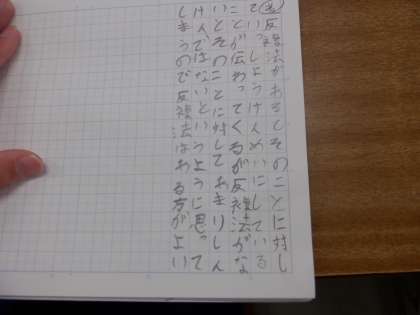 反複法があるとそのことに対し
ていっしょうけんめいにしている
ことが伝わってくるが反複法がな
いとそのことに対してあまりしん
けんではないというように思って
しまうので反複法はある方がよい